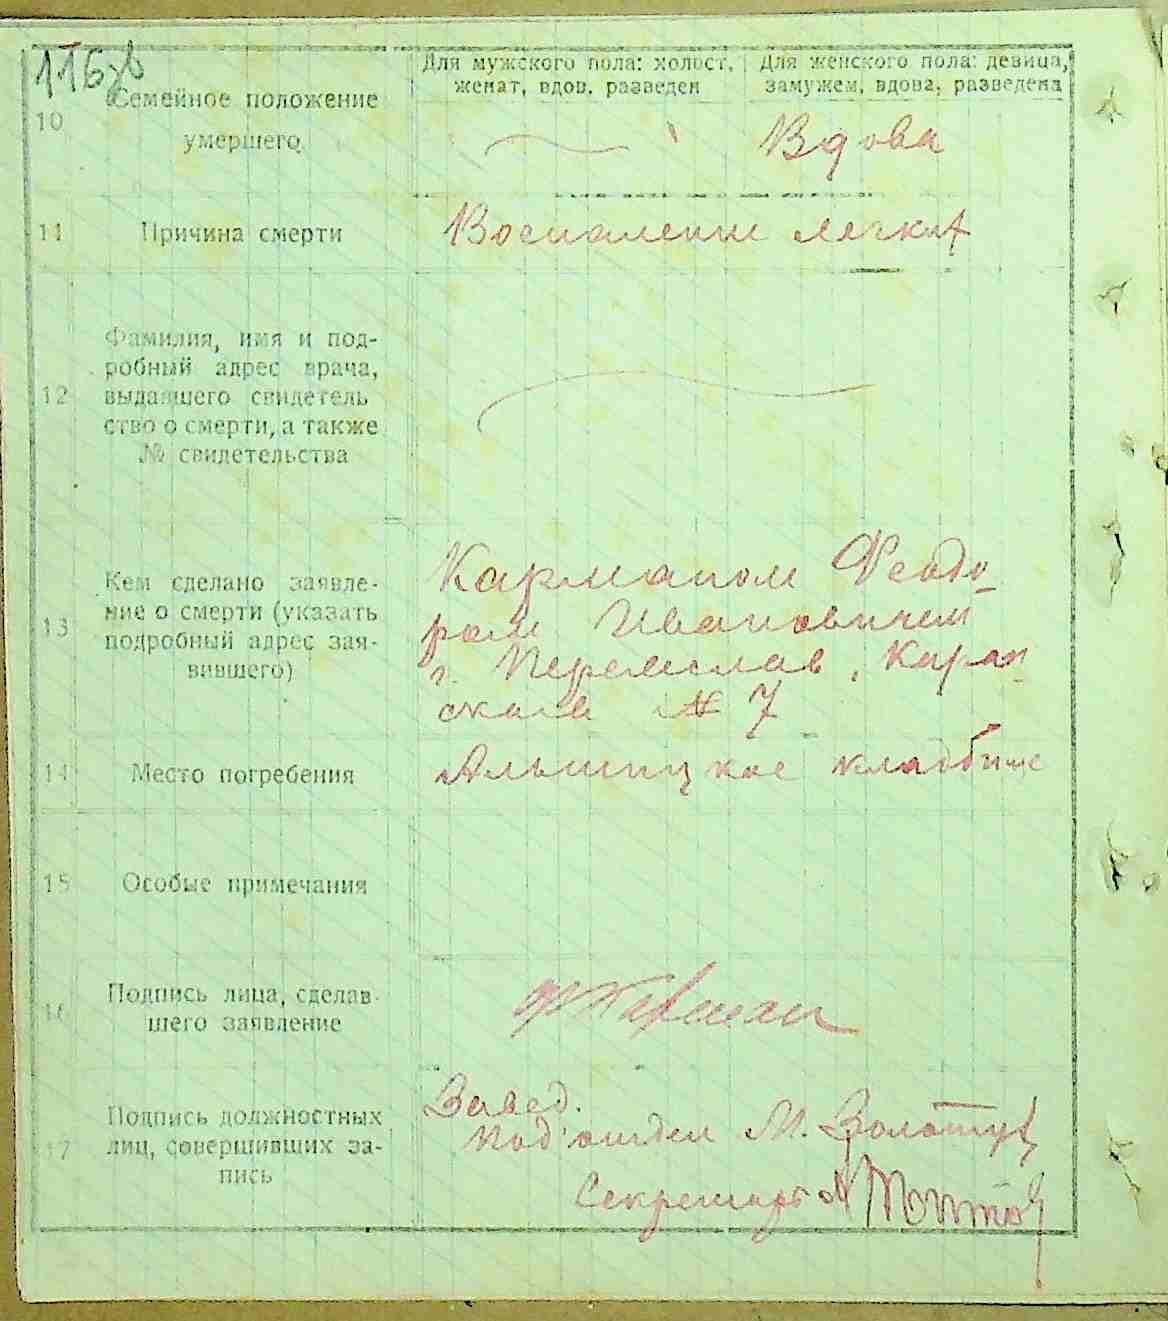 116зв
Для мужского пола: холост, женат, вдов, разведен
Для женского пола: девица, замужем, вдова, разведена
10
Семейное положение
умершего
Вдова
11
Причина смерти
Воспаление легких
12
Фамилия, имя и под-
робный адрес врача,
выдавшего свидетель
ство о смерти, а также
№ свидетельства
13
Кем сделано заявле-
ние о смерти (указать
подробный адрес зая-
вившего)
Карманом Феодо
ром Ивановичем
г. Переяслав,
№ 7
14
Место погребения
Альтицкое кладбище
15
Особые примечания
16
Подпись лица, сделав-
шего заявление
Ф Карман
17
Подпись должностных
лиц, совершивших за-
пись
Завед.
Под'отдел М. Золотух
Секретарь